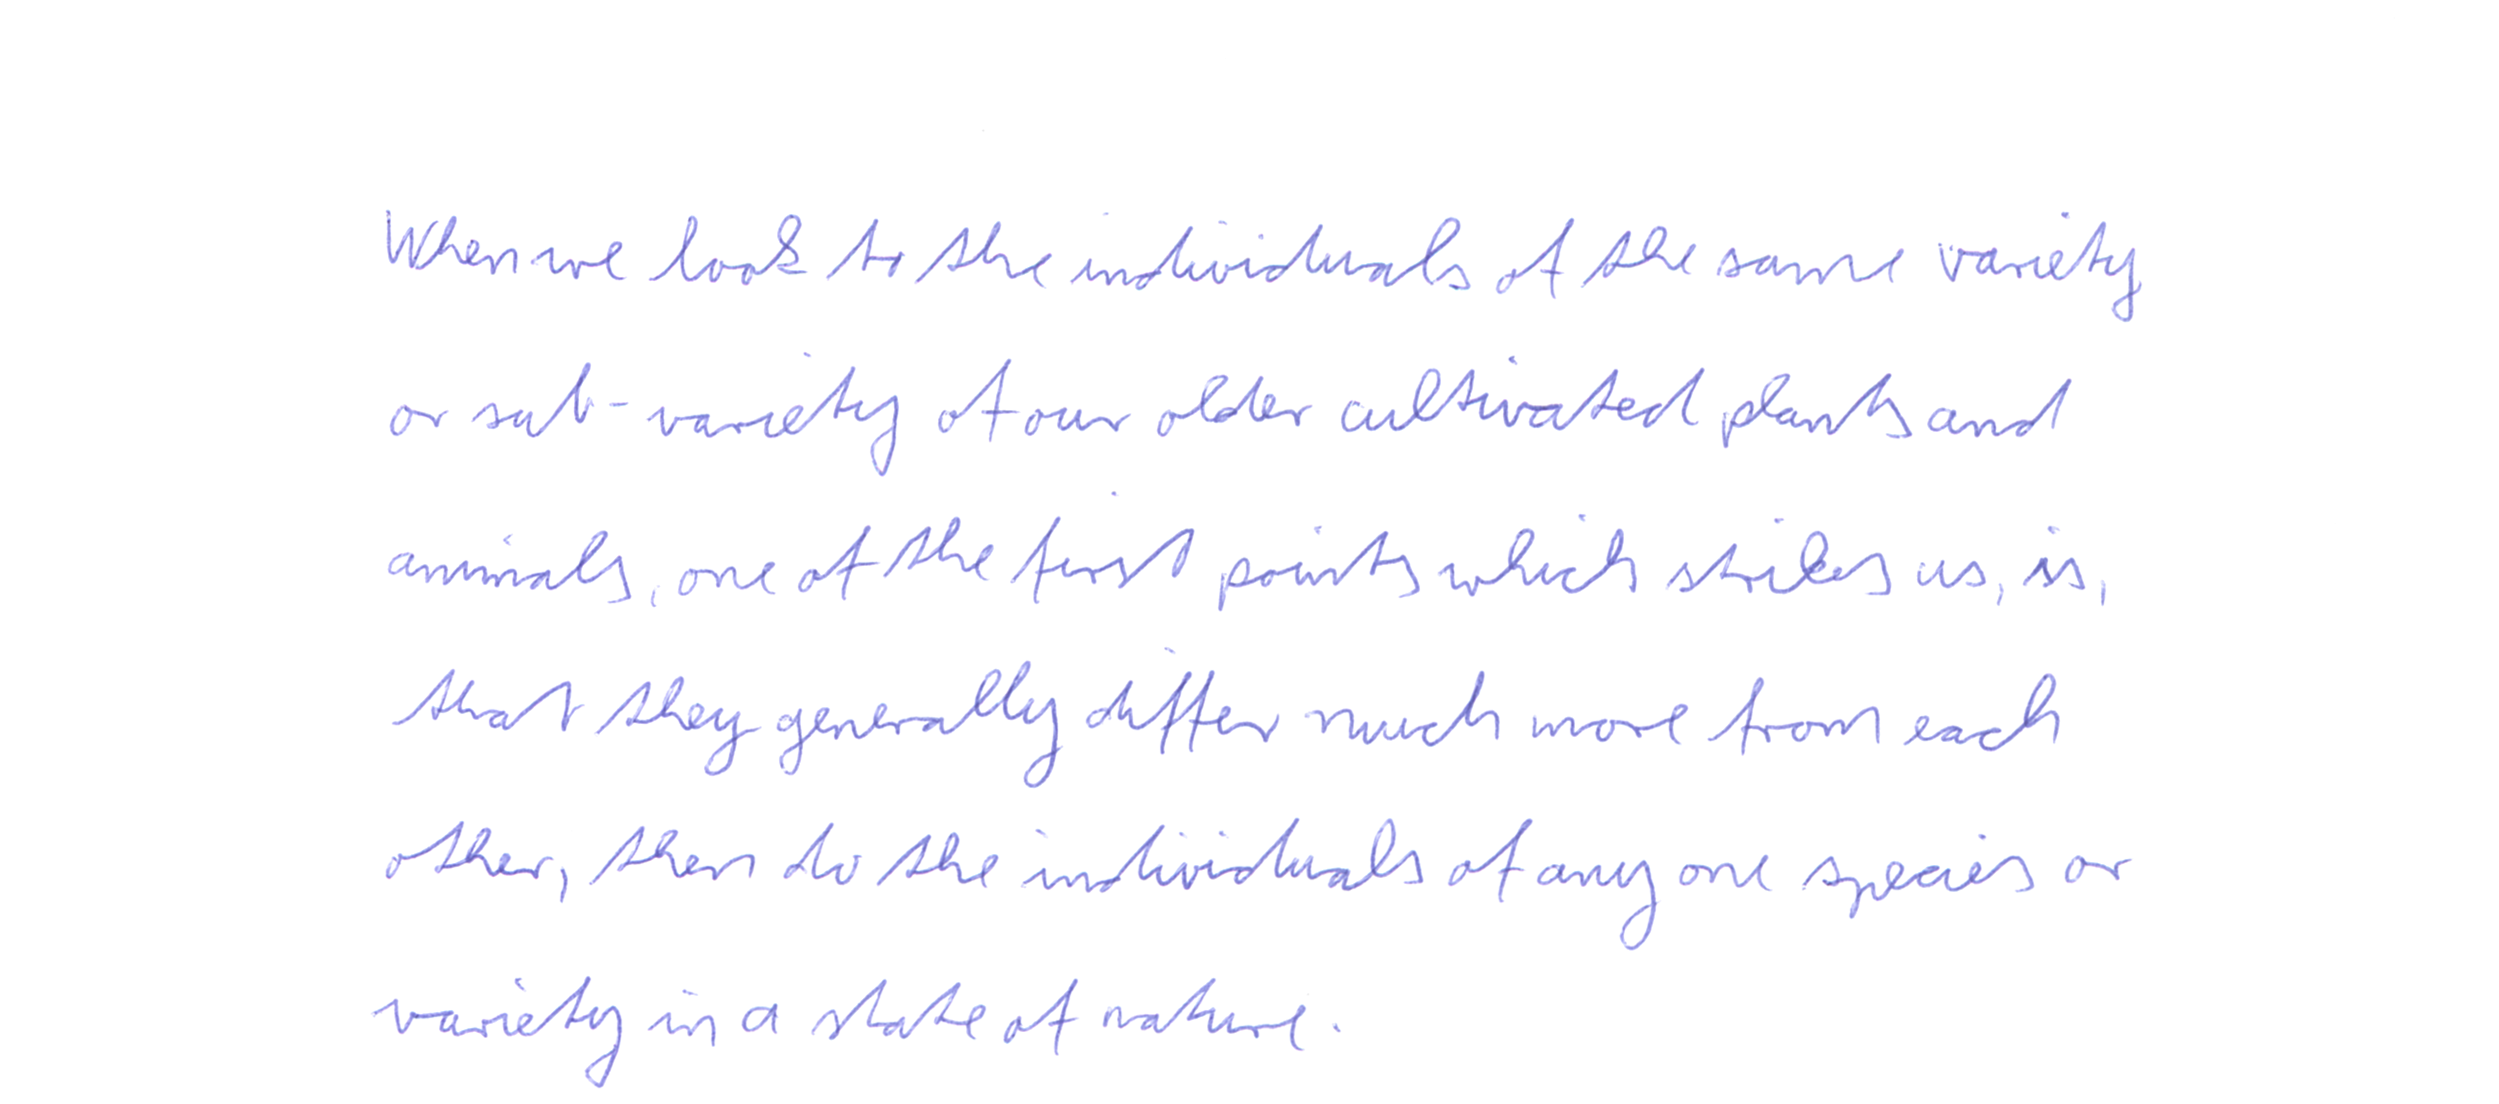 When we look to the individuals of the same variety
or sub-variety of our older cultivated plants and
animals, one of the first points which strikes us, is,
that they generally differ much more from each
other, then do the individuals of any one species or
variety in a state of nature.